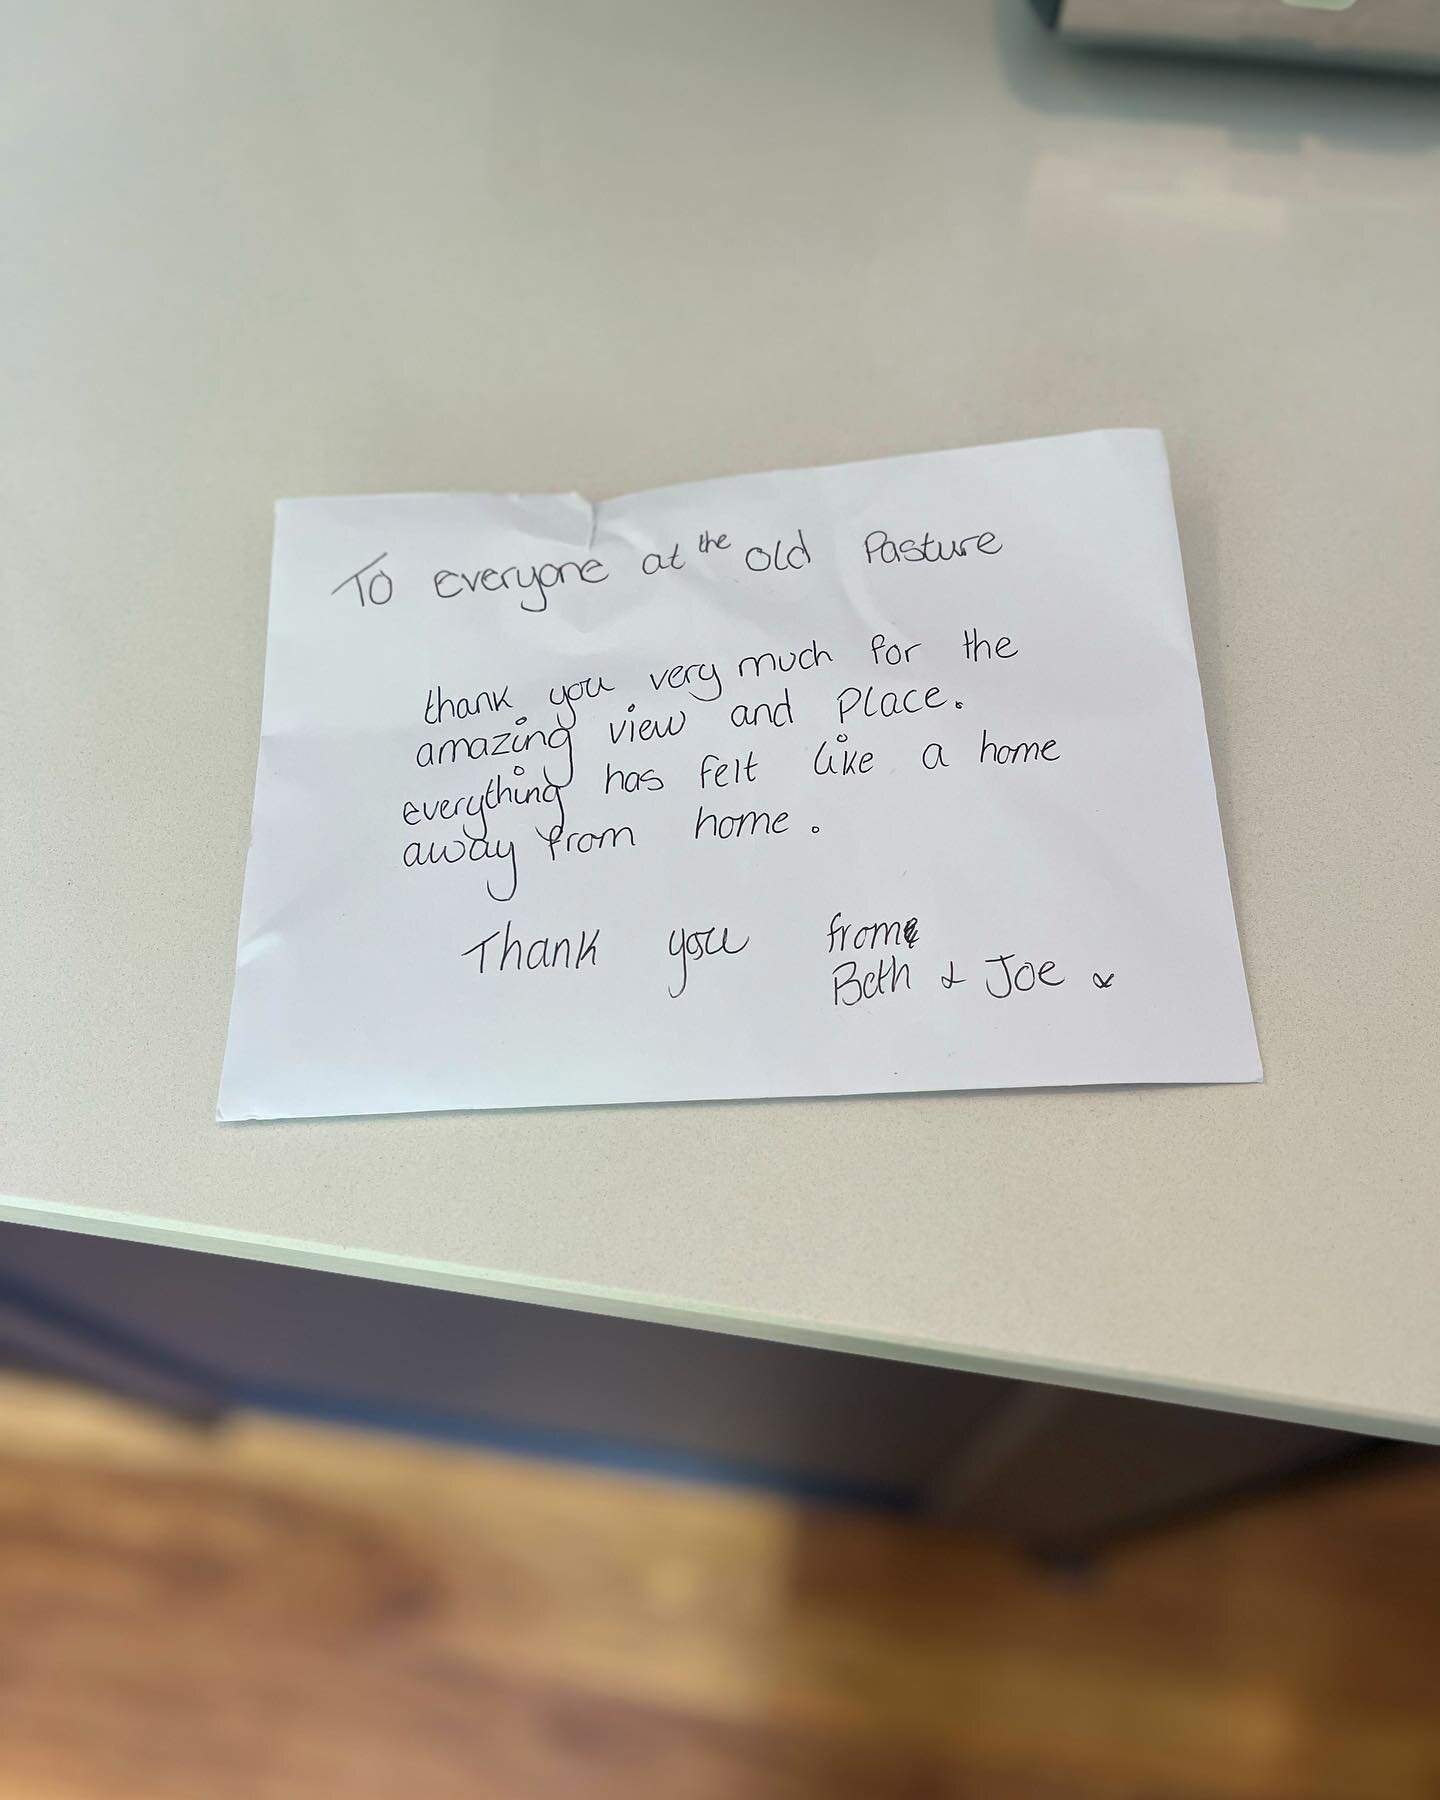 To everyone at the old Pasture
thank you very much for the
amazing view and Place.
everything has felt like a home
away from home.
Thank you from
Beth & Joe x